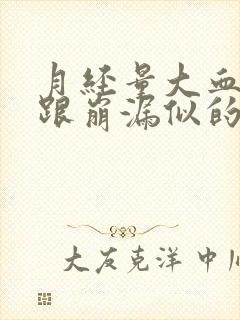 月经量大血
跟崩漏似的
大友克洋 中